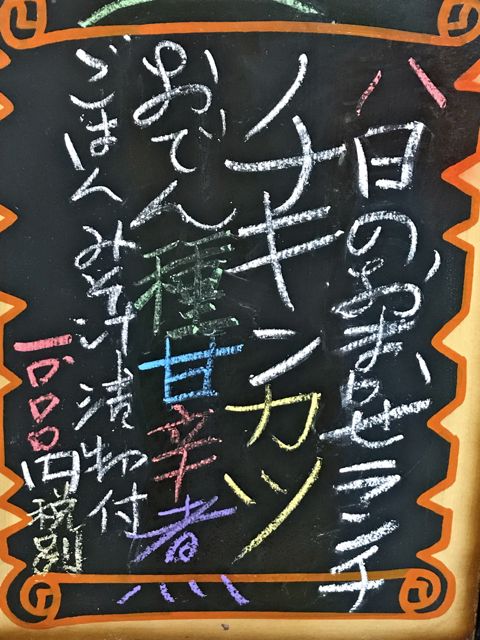 八日のおまかせランチ
チキンカツ
おでん種甘辛煮
ごはんみそ汁漬物付
一〇〇〇円税別